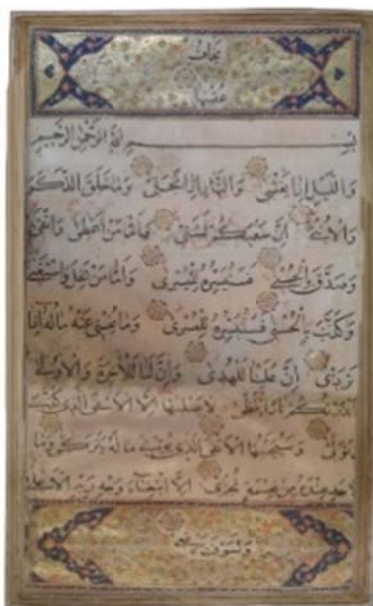 يخاف
عقبها
بسم الله الرحمن الرحيم
والليل اذا يغشى والنهار اذا تجلى وما خلق الذكر
والانثى ان سعيكم لشتى فاما من اعطى واتقى
وصدق بالحسنى فسنيسره لليسرى واما من بخل واستغنى
وكذب بالحسنى فسنيسره للعسرى وما يغنى عنه ماله اذا
تردى ان علينا للهدى وان لنا للاخرة والاولى
فانذرتكم نارا تلظى لا يصلىها الا الاشقى الذى كذب
وتولى وسيجنبها الاتقى الذى يؤتى ماله يتزكى وما
لاحد عنده من نعمة تجزى الا ابتغاء وجه ربه الاعلى
ولسوف يرضى